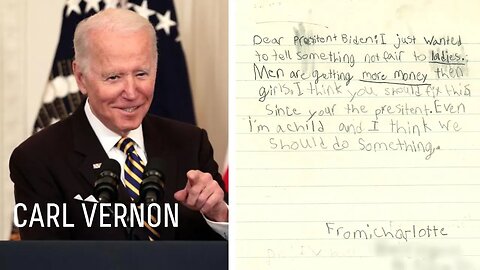 CARL VERNON
Dear president Biden: I just wanted
to tell something not fair to ladies.
Men are getting more money then
girls. I think you should fix this
since your the president. Even
I'm a child and I think we
should do something.
From: Charlotte